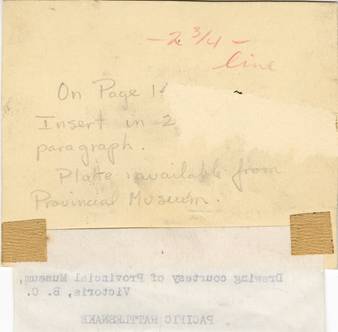 - 2 3/4 -
line
On Page 1
Insert in 2
paragraph.
Plate available from
Provincial Museum.
Drawing courtesy of Provincial Museum,
Victoria, B. C.
PACIFIC RATTLESNAKE